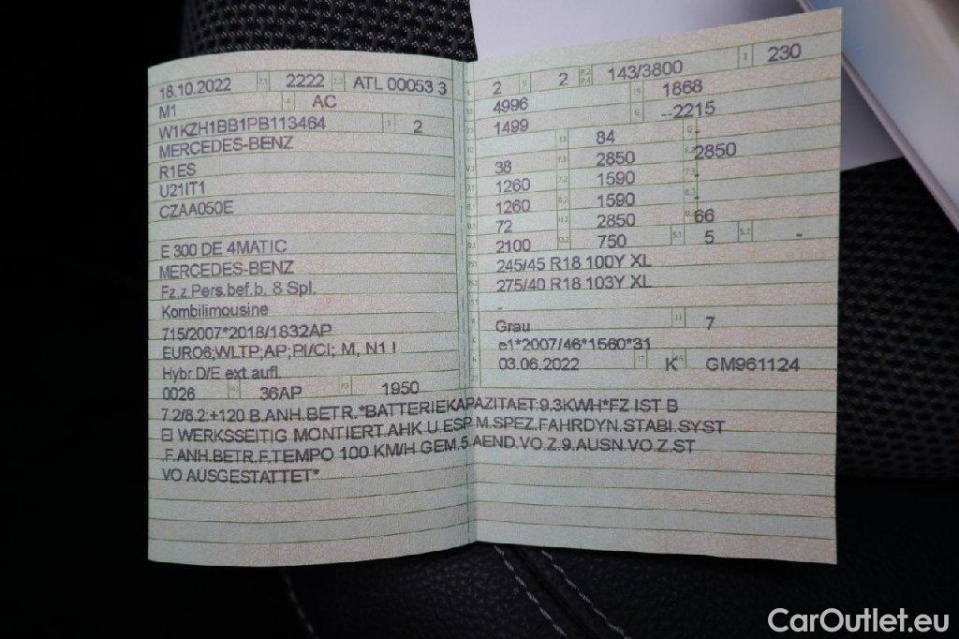 18.10.2022 2222 ATL 00053 3
M1 AC
W1KZH1BB1PB113464 2
MERCEDES-BENZ
R1ES
U21IT1
CZAA050E
E 300 DE 4MATIC
MERCEDES-BENZ
Fz.z.Pers.bef.b. 8 Spl.
Kombilimousine
715/2007*2018/1832AP
EURO6;WLTP;AP;PI/CI; M, N1 I
Hybr.D/E ext.aufl.
0026 36AP 1950
2 2 143/3800 230
4996 1868
1499 --2215
84 -
38 2850 2850
1260 1590 -
1260 1590 -
72 2850 66
2100 750 5 -
245/45 R18 100Y XL
275/40 R18 103Y XL
-
Grau 7
e1*2007/46*1560*31
03.06.2022 K GM961124
7.2/8.2:+120 B.ANH.BETR.*BATTERIEKAPAZITAET:9.3KWH*FZ IST B
EI WERKSSEITIG MONTIERT.AHK U.ESP M.SPEZ.FAHRDYN.STABI.SYST
.F.ANH.BETR.F.TEMPO 100 KM/H GEM.5.AEND.VO.Z.9.AUSN.VO.Z.ST
VO AUSGESTATTET*
CarOutlet.eu